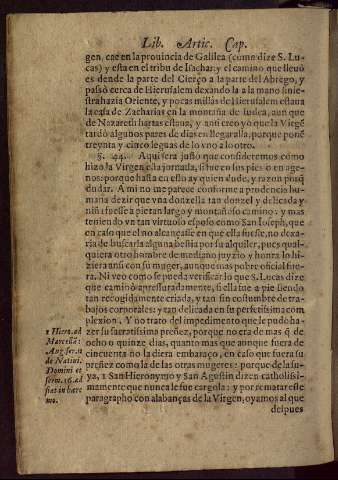 Lib. Artic. Cap.
gen, cae en la prouincia de Galilea (como dize S. Lu-
cas) y esta en el tribu de Isachar: y el camino que lleuò
es dende la parte del Cierço a la parte del Abrego, y
passò cerca de Hierusalem dexandola a la mano sinie-
stra hazia Oriente, y pocas millas de Hierusalem estaua
la casa de Zacharias en la montaña de Iudea, aun que
de Nazareth hartas estaua, y aun creo yo que la Virgē
tardò algunos pares de dias en llegar alla, porque ponē
treynta y cinco leguas de lo vno a lo otro.
§. 44. Aqui sera justo que consideremos como
hizo la Virgen esta jornada, si fue en sus pies o en age-
nos: porque hasta en esto ay quien dude, y razon porq̃
dudar. A mi no me parece conforme a prudencia hu-
mana dezir que vna donzella tan donzel y delicada y
niña fuesse a pie tan largo y montañoso camino: y mas
teniendo vn tan virtuoso esposo como San Ioseph, que
en caso que el no alcançasse en que ella fuesse, no dexa-
ria de buscarla alguna bestia por su alquiler, pues qual-
quiera otro hombre de mediano juyzio y honra lo hi-
ziera ansi con su muger, aunque mas pobre oficial fue-
ra. Ni veo como se pueda verificar lo que S. Lucas dize
que caminò apressuradamente, si ella fue a pie siendo
tan recogidamente criada, y tan sin costumbre de tra-
bajos corporales: y tan delicada en su perfetissima com
plexion. Y no trato del impedimento que le pudo ha-
zer su sacratissima preñez, porque no era de mas q̃ de
ocho o quinze dias, quanto mas que aunque fuera de
cincuenta no la diera embaraço, en caso que fuera su
preñez como la de las otras mugeres: porque de la su-
ya, 1 San Hieronymo y San Agustin dizen catholicissi-
mamente que nunca le fue cargosa: y por rematar este
paragrapho con alabanças de la Virgen, oyamos al que
despues
1 Hiero. ad
Marcellā:
Aug. ser. 11
de Natiui.
Domini et
serm. 16. ad
frat. in here
mo.